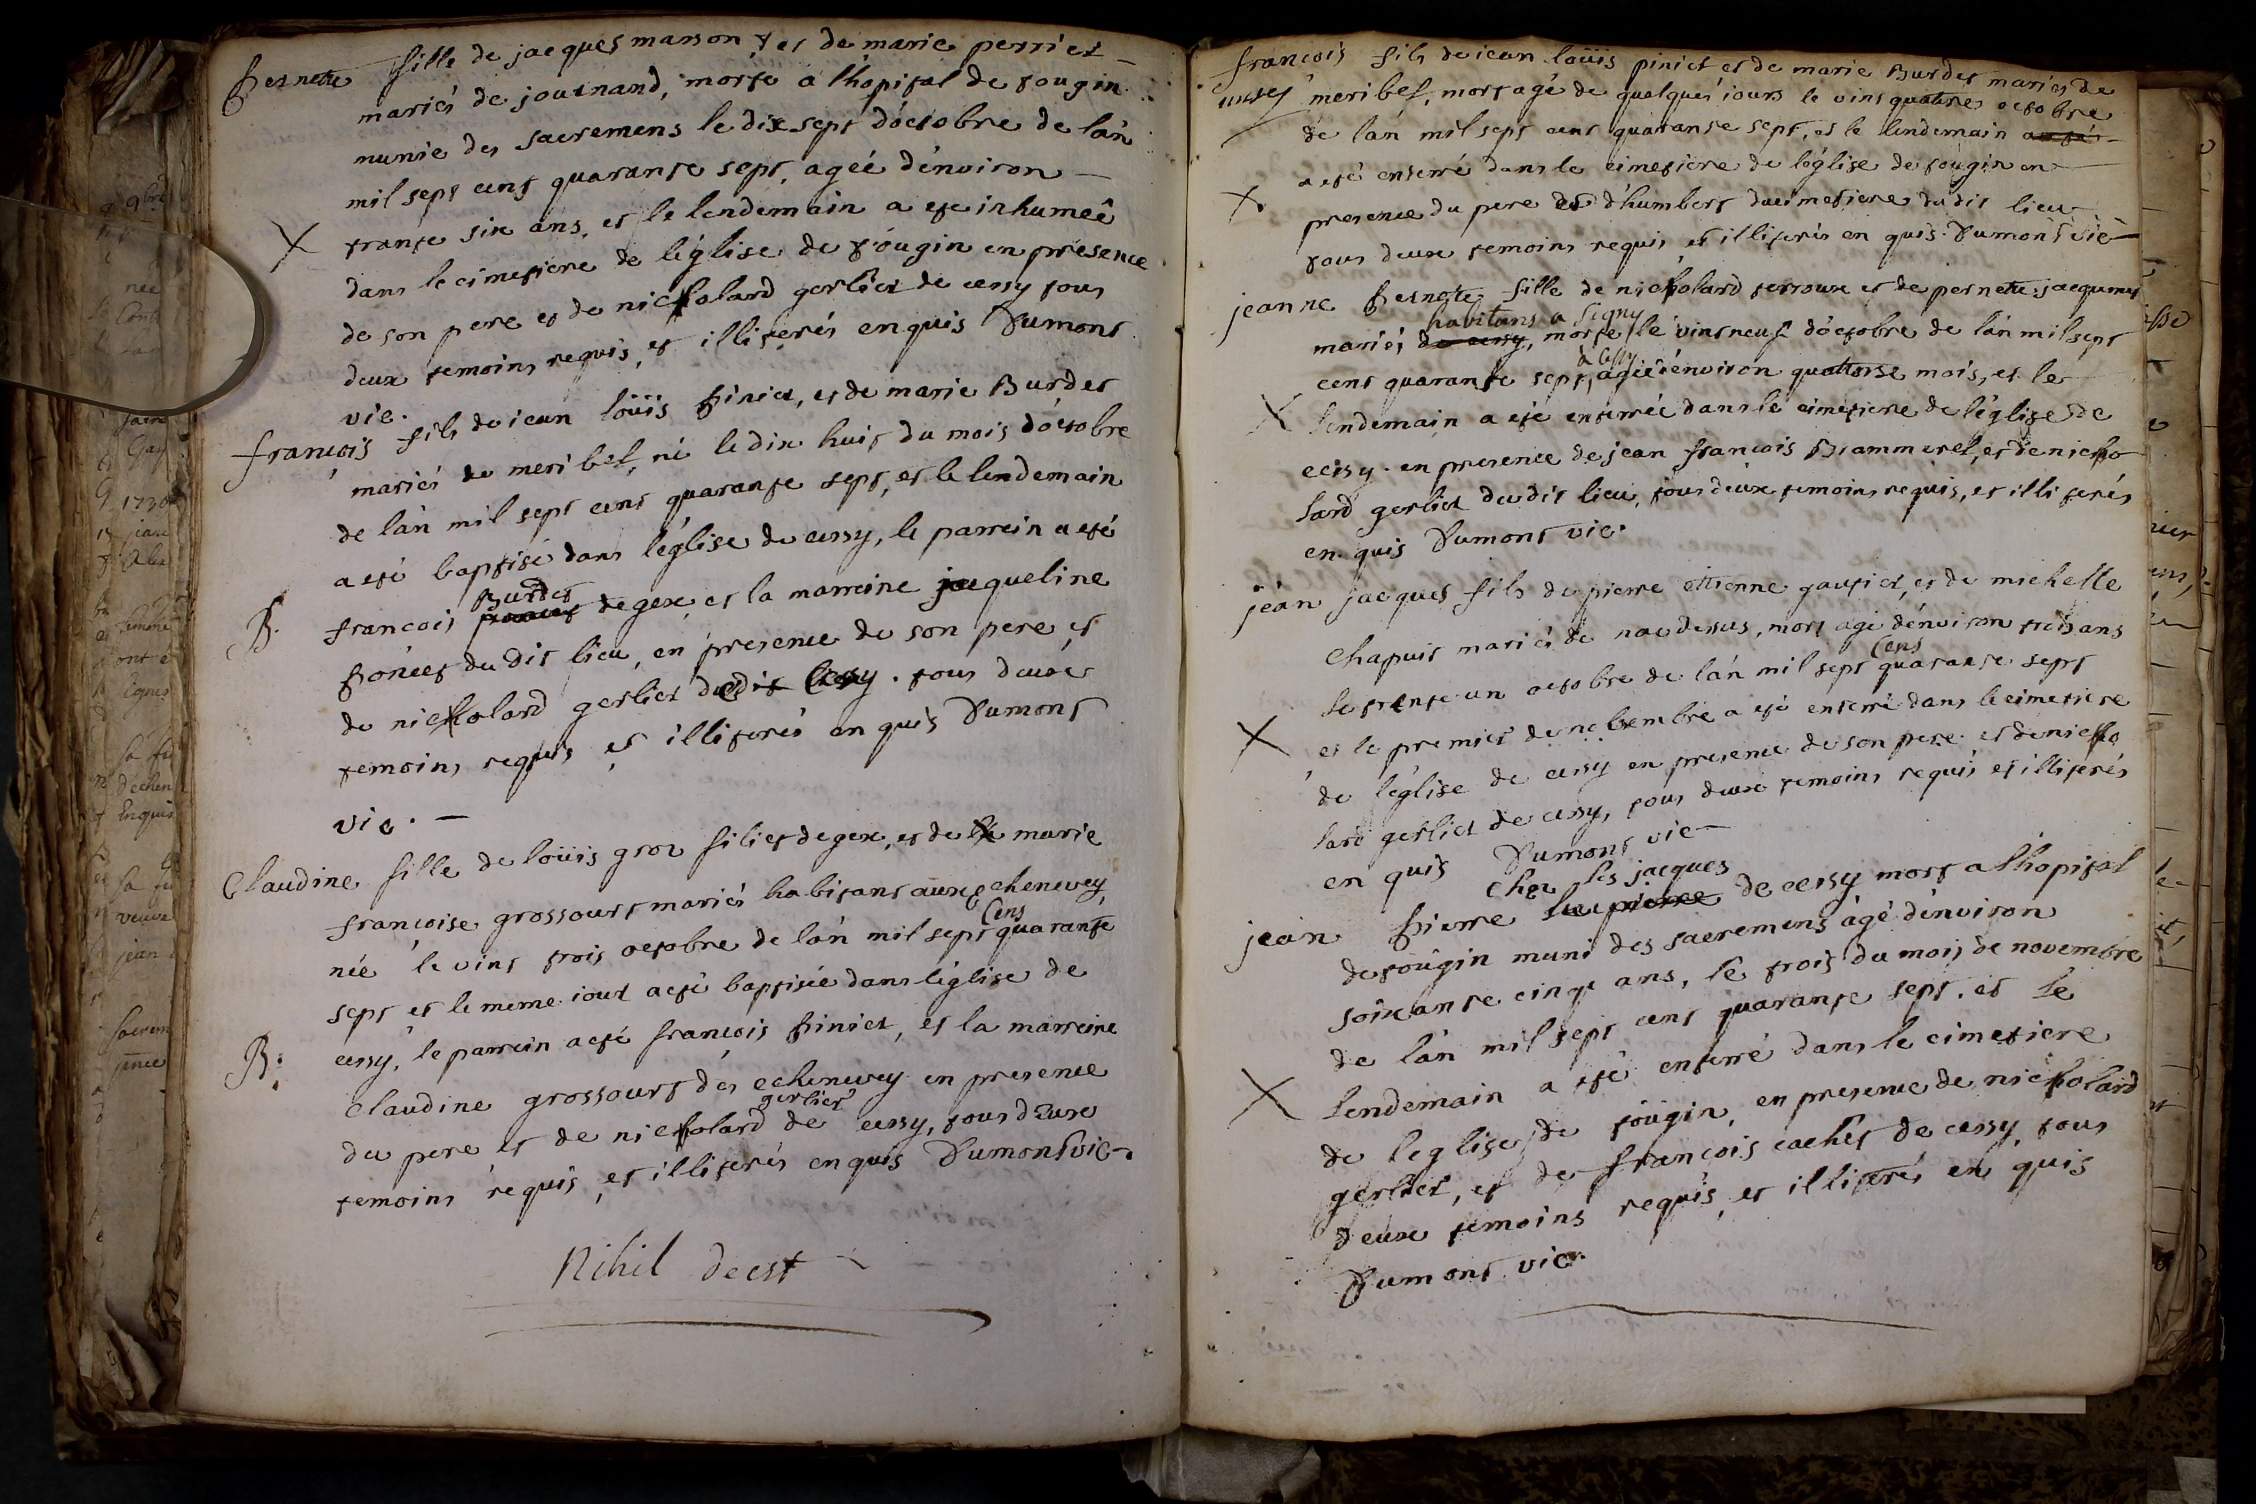 Pernete fille de jacques masson et de marie perriet
mariés de journand, morte a lhopital de tougin
munie des sacremens le dix sept d'octobre de lan
mil sept cent quarante sept, agée d'environ
trante six ans, et le lendemain a eté inhumeê
dans le cimetiere de léglise de tougin en presence
de son pere et de nickolard gerliet de cessy tous
deux temoins requis, et illiterés enquis Dumont
vic.
françois fils de iean loüis piniet, et de marie Burdet
mariés de meribel, né le dix huit du mois doctobre
de lan mil sept cent quarante sept, et le lendemain
a eté baptisé dans léglise de cessy, le parrein a eté
Burdet
francois de gex, et la marreine jacqueline
poncet du dit lieu, en presence de son pere et
de nickolard gerliet dudit Cessy. tous deux
temoins requis et illiterés en quis Dumont
vic. —
Claudine fille de loüis groz filiet de gex, et de marie
francoise grossourt mariés habitant aux echenevey,
Cens
née le vint trois octobre de lan mil sept quarante
sept et le meme iour a eté baptisée dans léglise de
cessy, le parrein a eté françois piniet, et la marreine
Claudine grossourt des echenevey en presence
gerliet
du pere et de nickolard de cessy, tous deux
temoins requis, et illiterés enquis Dumont vic
B.
B:
Nihil deest
francois fils de iean loüis piniet et de marie Burdet mariés de
meribel, mort agé de quelques iours le vint quatre octobre
de lan mil sept cent quarante sept, et le lendemain
a eté enterré dans le cimetiere de léglise de tougin en
presence du pere d'humbert du cimetiere du dit lieu
tous deux temoins requis et illiterés en quis Dumont vic
jeanne Pernete fille de nickolard terroux et de pernete jacquemet
habitans a Segny
mariés de cessy, morte le vint neuf d'octobre de lan mil sept
à Cessy
cent quarante sept, agée d'environ quattorse mois, et le
lendemain a eté enterrée dans le cimetiere de léglise de
cessy. en presence de jean francois Brammerel, et de nicko
lard gerliet du dit lieu, tous deux temoins requis, et illiterés
en quis Dumont vic.
jean jacques fils de pierre ettienne gautiet, et de michelle
Chapuis mariés de naz dessus, mort agé d'environ trois ans
Cens
le trente un octobre de lan mil sept quarante sept
et le premier de nobembre a eté enterré dans le cimetiere
de léglise de cessy en presence de son pere et de nicko
lard gerliet de cessy, tous deux temoins requis et illiterés
en quis Dumont vic
chez les jacques
jean pierre de cessy mort a lhopital
de tougin muni des sacremens agé d'environ
soixante cinq ans, le trois du mois de novembre
de lan mil sept cent quarante sept. et le
lendemain a eté enterré dans le cimetiere
de leglise de tougin, en presence de nickolard
gerliet, et de francois cachet de cessy, tous
deux temoins requis, et illiterés en quis
Dumont vic.